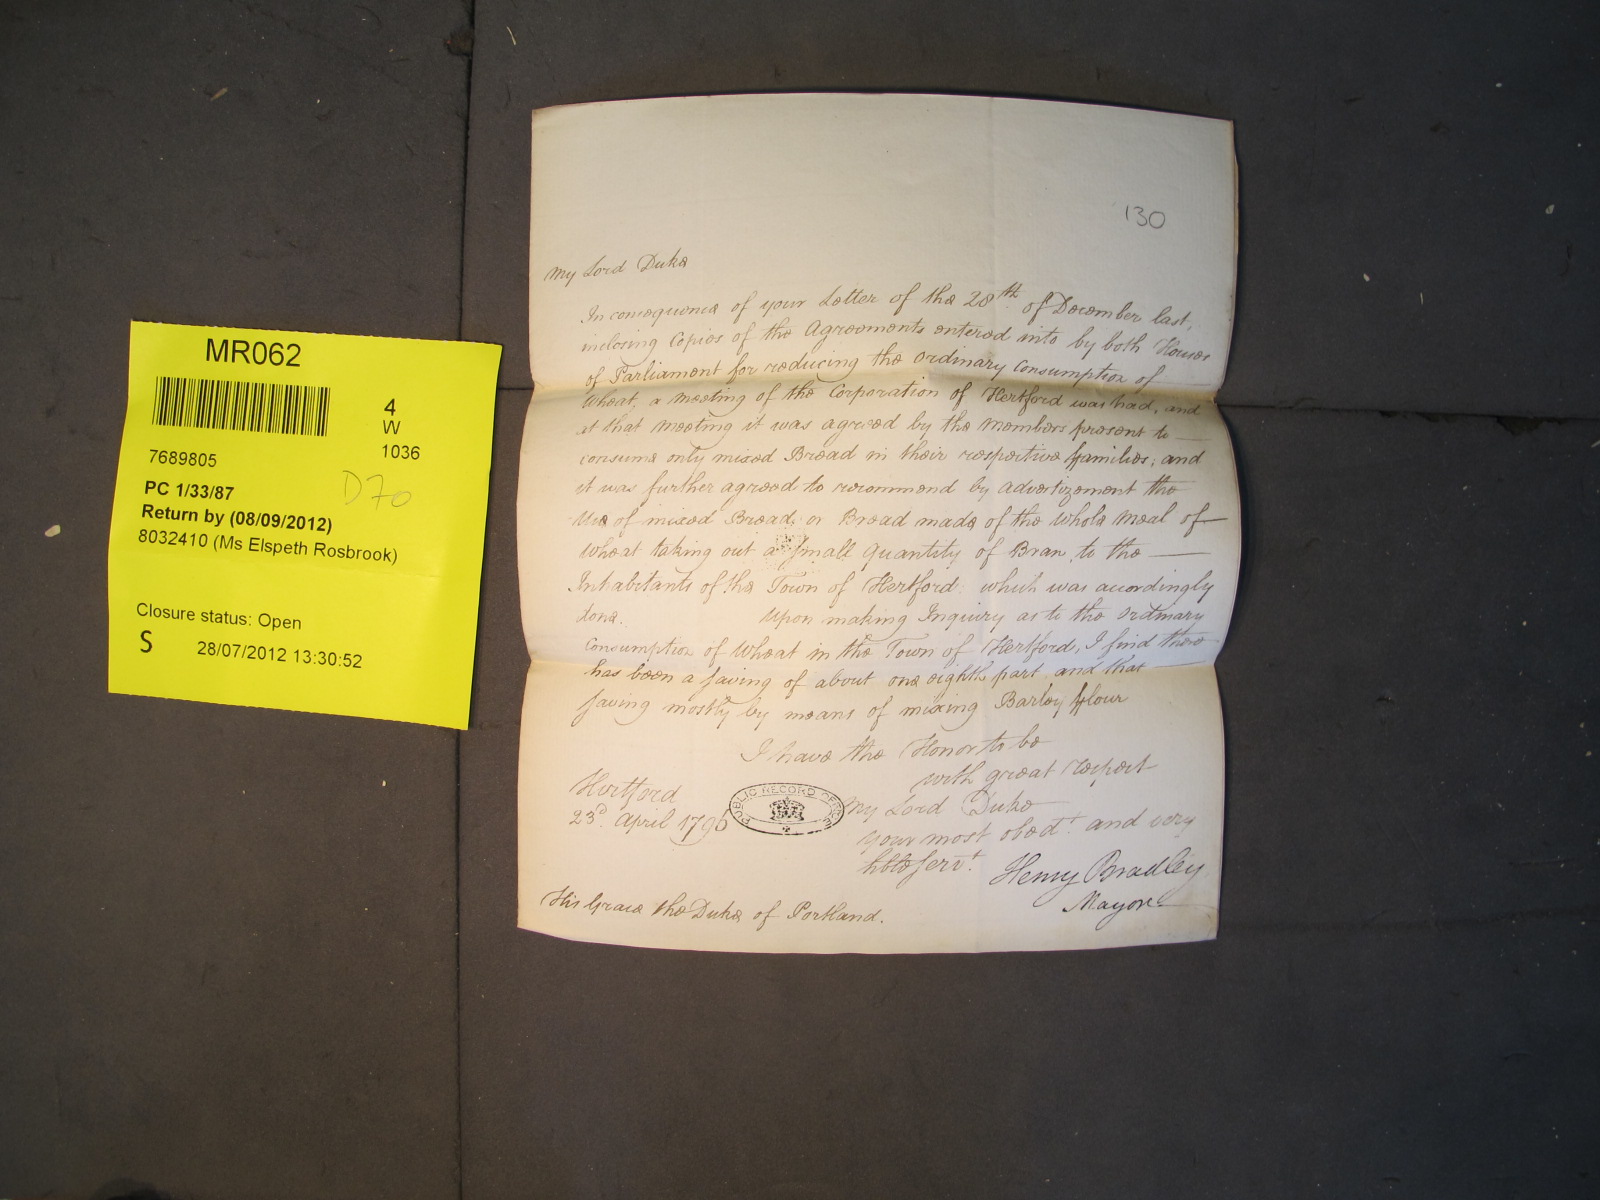 MR062
4
W
1036
7689805
D70
PC 1/33/87
Return by (08/09/2012)
8032410 (Ms Elspeth Rosbrook)
Closure status: Open
S 28/07/2012 13:30:52
130
My Lord Duke
In consequence of your Letter of the 28th of December last,
inclosing Copies of the Agreements entered into by both Houses
of Parliament for reducing the ordinary Consumption of
Wheat, a Meeting of the Corporation of Hertford was had, and
at that Meeting it was agreed by the Members present to
consume only mixed Bread in their respective families; and
it was further agreed to recommend by Advertizement the
Use of mixed Bread, or Bread made of the whole Meal of
Wheat taking out a small Quantity of Bran, to the
Inhabitants of the Town of Hertford: which was accordingly
done. Upon making Inquiry as to the ordinary
Consumption of Wheat in the Town of Hertford, I find there
has been a saving of about one eighth part, and that
saving mostly by means of mixing Barley flour
I have the Honor to be
with great respect
My Lord Duke
your most obedt. and very
hble servt.
Hertford
23d. April 1796
PUBLIC RECORD OFFICE
Henry Bradley
Mayor
His Grace the Duke of Portland.